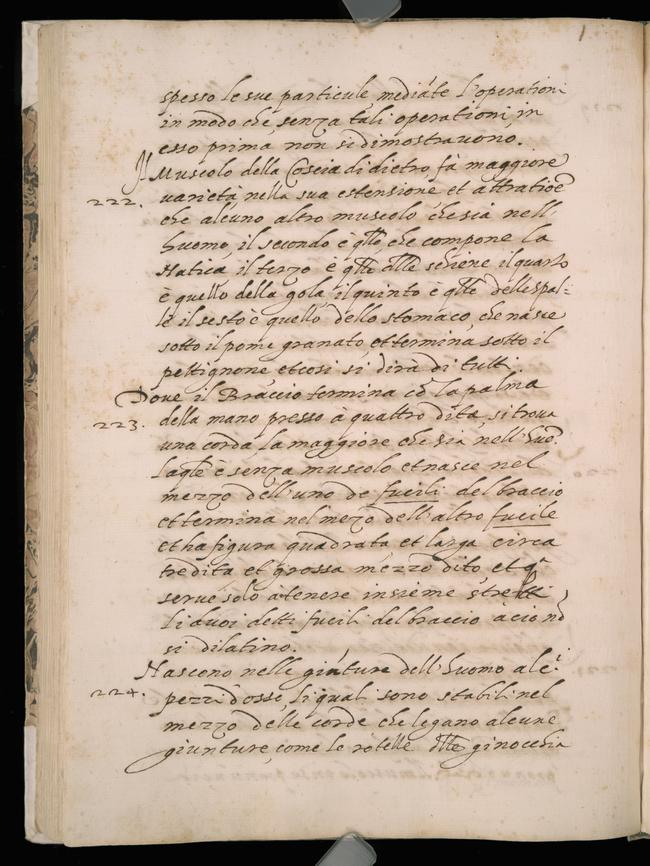 spesso le sue particule mediáte l'operationi
in modo che senza tali operationi in
esso prima, non si dimostravono.
Il Muscolo della Coscia di dietro fà maggiore
222. varietà nella sua estensione et attratioē
che alcuno altro muscolo che sia nell'
huomo, il secondo è qllo, che compone la
Natica, il terzo è qllo dlle schiene il quarto
è quello della gola, il quinto è qllo delle spal=
le il sesto è quello dello stomaco, che nasce
sotto il pome granato, et termina sotto il
pettignone et cosi si dirà di tutti.
Dove il Braccio termina cō la palma
223. della mano presso à quattro dita, si trova
una corda la maggiore che sia nell'huō.
laqle è senza muscolo et nasce nel
mezzo dell'uno de fucili del braccio
et termina nel mezo dell'altro fucile
et ha figura quadrata, et larga circa
tre dita et grossa mezzo dito et qª
serve solo a tenere insieme stretti
li duoi detti fucili del braccio aciò nō
si dilatino.
Nascono nelle giúture dell'huomo alcⁱ
224. pezzi d'osso, li quali sono stabili nel
mezzo delle corde che legano alcune
giunture, come le rotelle dlle ginocchia